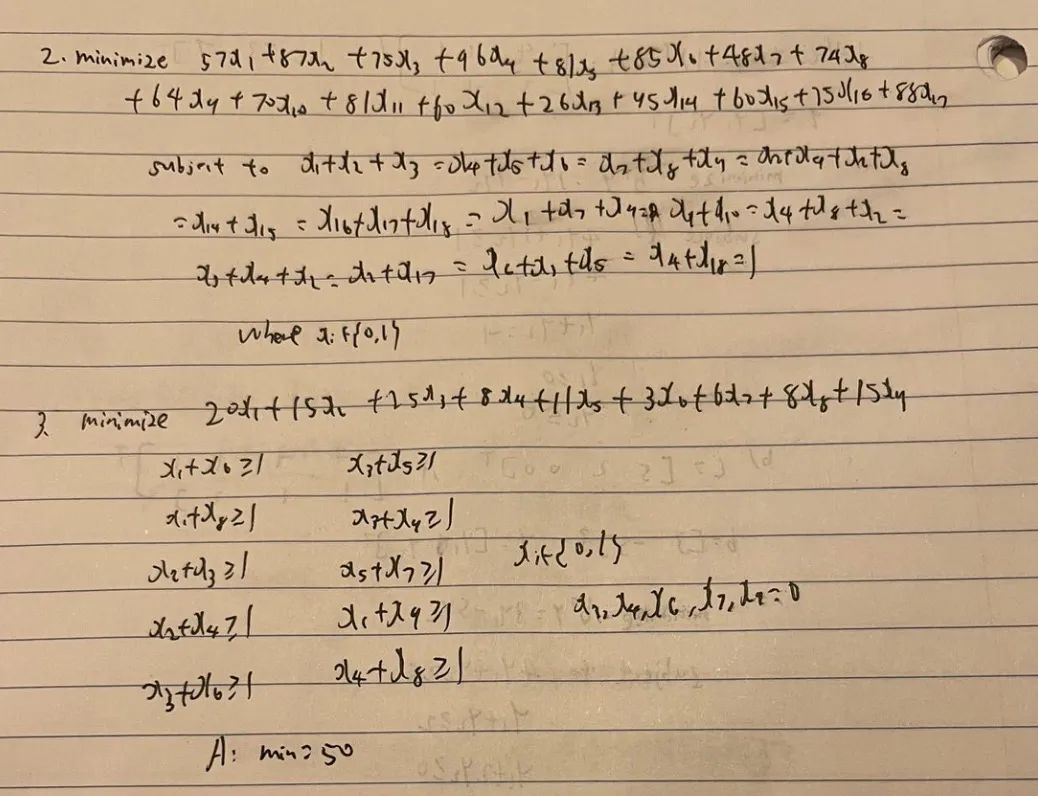 2. minimize 57x₁ + 87x₂ + 75x₃ + 96x₄ + 81x₅ + 85x₆ + 48x₇ + 74x₈
+ 64x₉ + 70x₁₀ + 81x₁₁ + 60x₁₂ + 26x₁₃ + 45x₁₄ + 60x₁₅ + 75x₁₆ + 88x₁₇
subject to x₁+x₂+x₃ = x₄+x₅+x₆ = x₇+x₈+x₉ =
= x₁₄+x₁₅ = x₁₆+x₁₇+x₁₈ = x₁+x₇+x₉ = x₉+x₁₀ = x₄+x₈+x₂ =
x₃+x₄+x₂ = x₂+x₁₇ = x₆+x₁+x₅ = x₄+x₁₈ = 1
where xᵢ∈{0,1}
3. minimize 20x₁+15x₂+25x₃+8x₄+11x₅+3x₆+6x₇+8x₈+15x₉
x₁+x₆≥1 x₃+x₅≥1
x₁+x₈≥1 x₇+x₉≥1
x₂+x₃≥1 x₅+x₇≥1 xᵢ∈{0,1}
x₂+x₄≥1 x₁+x₉≥1 x₄,x₆,x₇, =0
x₃+x₆≥1 x₄+x₈≥1
A: min=50